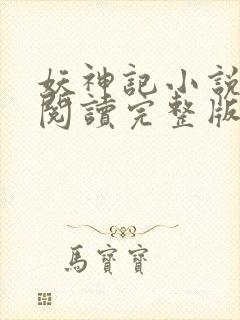 妖神記小說
閱讀完整版
馬寶寶